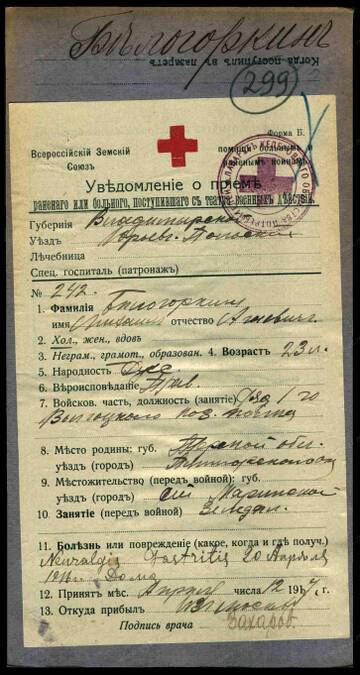 Бѣлогоркинъ
Когда поступилъ въ лазаретъ
299
Форма Б.
Всероссійскій Земскій помощи больнымъ и
Союзъ раненымъ воинамъ
Увѣдомленіе о пріемѣ
раненаго или больного, поступившаго съ театра военныхъ дѣйствій.
Губернія Владимирской
Уѣздъ Юрьев. Польской
Лѣчебница
Спец. госпиталь (патронажъ)
№ 242.
1. Фамилія Бѣлогоркинъ
имя отчество
2. Хол., жен., вдовъ
3. Неграм., грамот., образован. 4. Возрастъ 23 л.
5. Народность
6. Вѣроисповѣданіе Прав.
7. Войсков. часть, должность (занятіе) 1го
8. Мѣсто родины: губ. Терской обл.
уѣздъ (городъ)
9. Мѣстожительство (передъ войной): губ.
уѣздъ (городъ) Маринской
10. Занятіе (передъ войной)
11. Болѣзнь или поврежденіе (какое, когда и гдѣ получ.)
Neuralgia Gastritis 20 Апрѣля
1916 Дома
12. Принятъ мѣс. Апрѣль числа 12 1917 г.
13. Откуда прибылъ
Подпись врача Захаров.